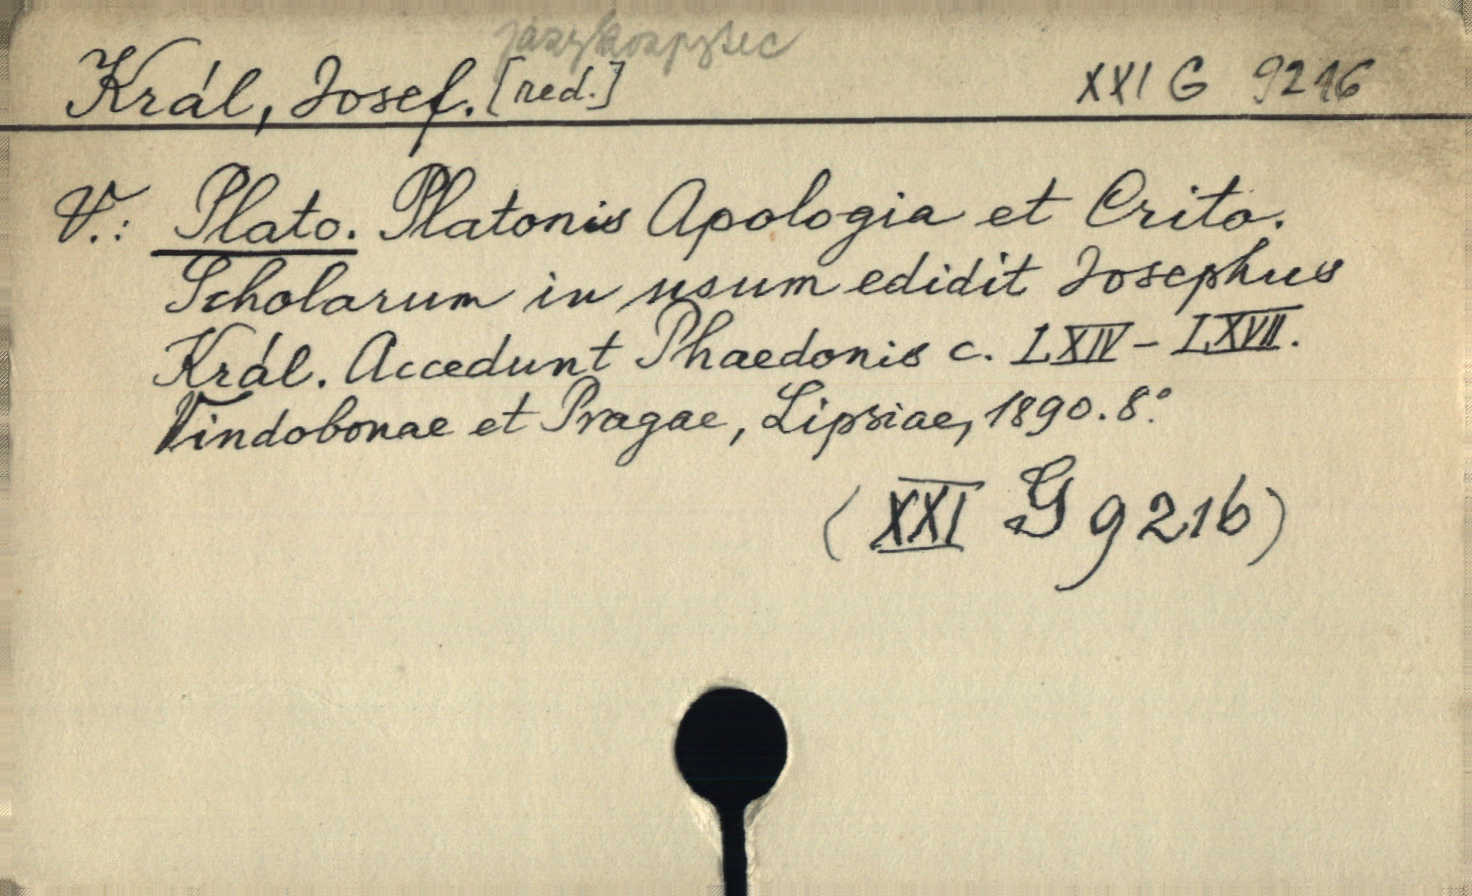 jazykozpytec
Král, Josef. [red.] XXI G 9216
V.: Plato. Platonis Apologia et Crito.
Scholarum in usum edidit Josephus
Král. Accedunt Phaedonis c. LXIV - LXVII.
Vindobonae et Pragae, Lipsiae, 1890. 8.°
(XXI G 9216)